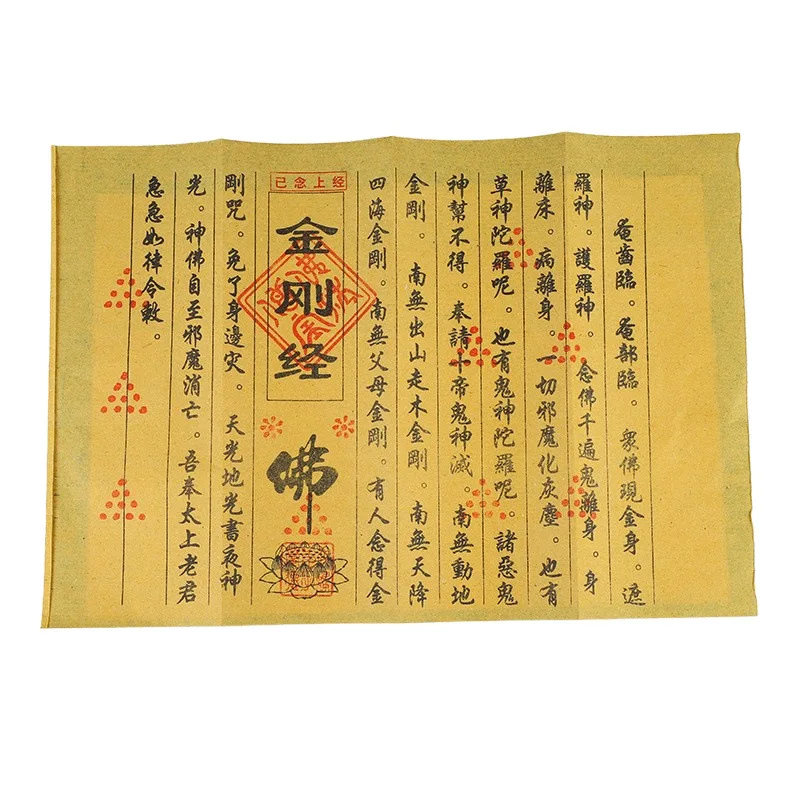 菴齒臨。菴部臨。衆佛現金身。遮
羅神。護羅神。念佛千遍鬼離身。身
離床。病離身。一切邪魔化灰塵。也有
草神陀羅呢。也有鬼神陀羅呢。諸惡鬼
神幫不得。奉請十帝鬼神滅 南無動地
金剛。南無出山走木金剛。南無天降
四海金剛。南無父母金剛。有人念得金
已念上经
金刚经
佛
剛咒。免了身邊灾。天光地光書夜神
光。神佛自至邪魔消亡。吾奉太上老君
急急如律令敕。